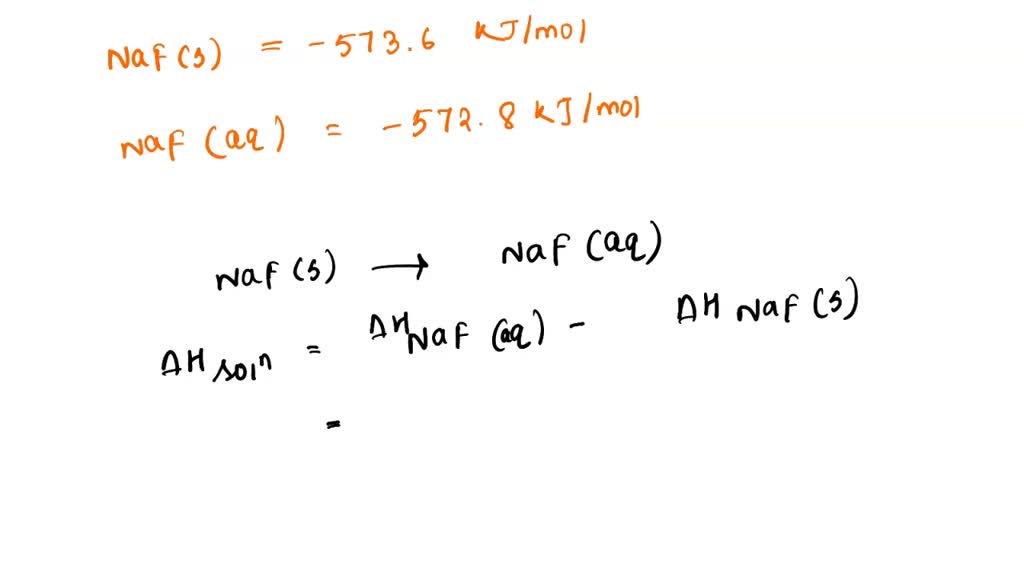 NaF (s) = -573.6 KJ/mol
NaF (aq) = -572.8 KJ/mol
NaF (s) → NaF (aq)
ΔH soln = ΔH NaF (aq) - ΔH NaF (s)
=